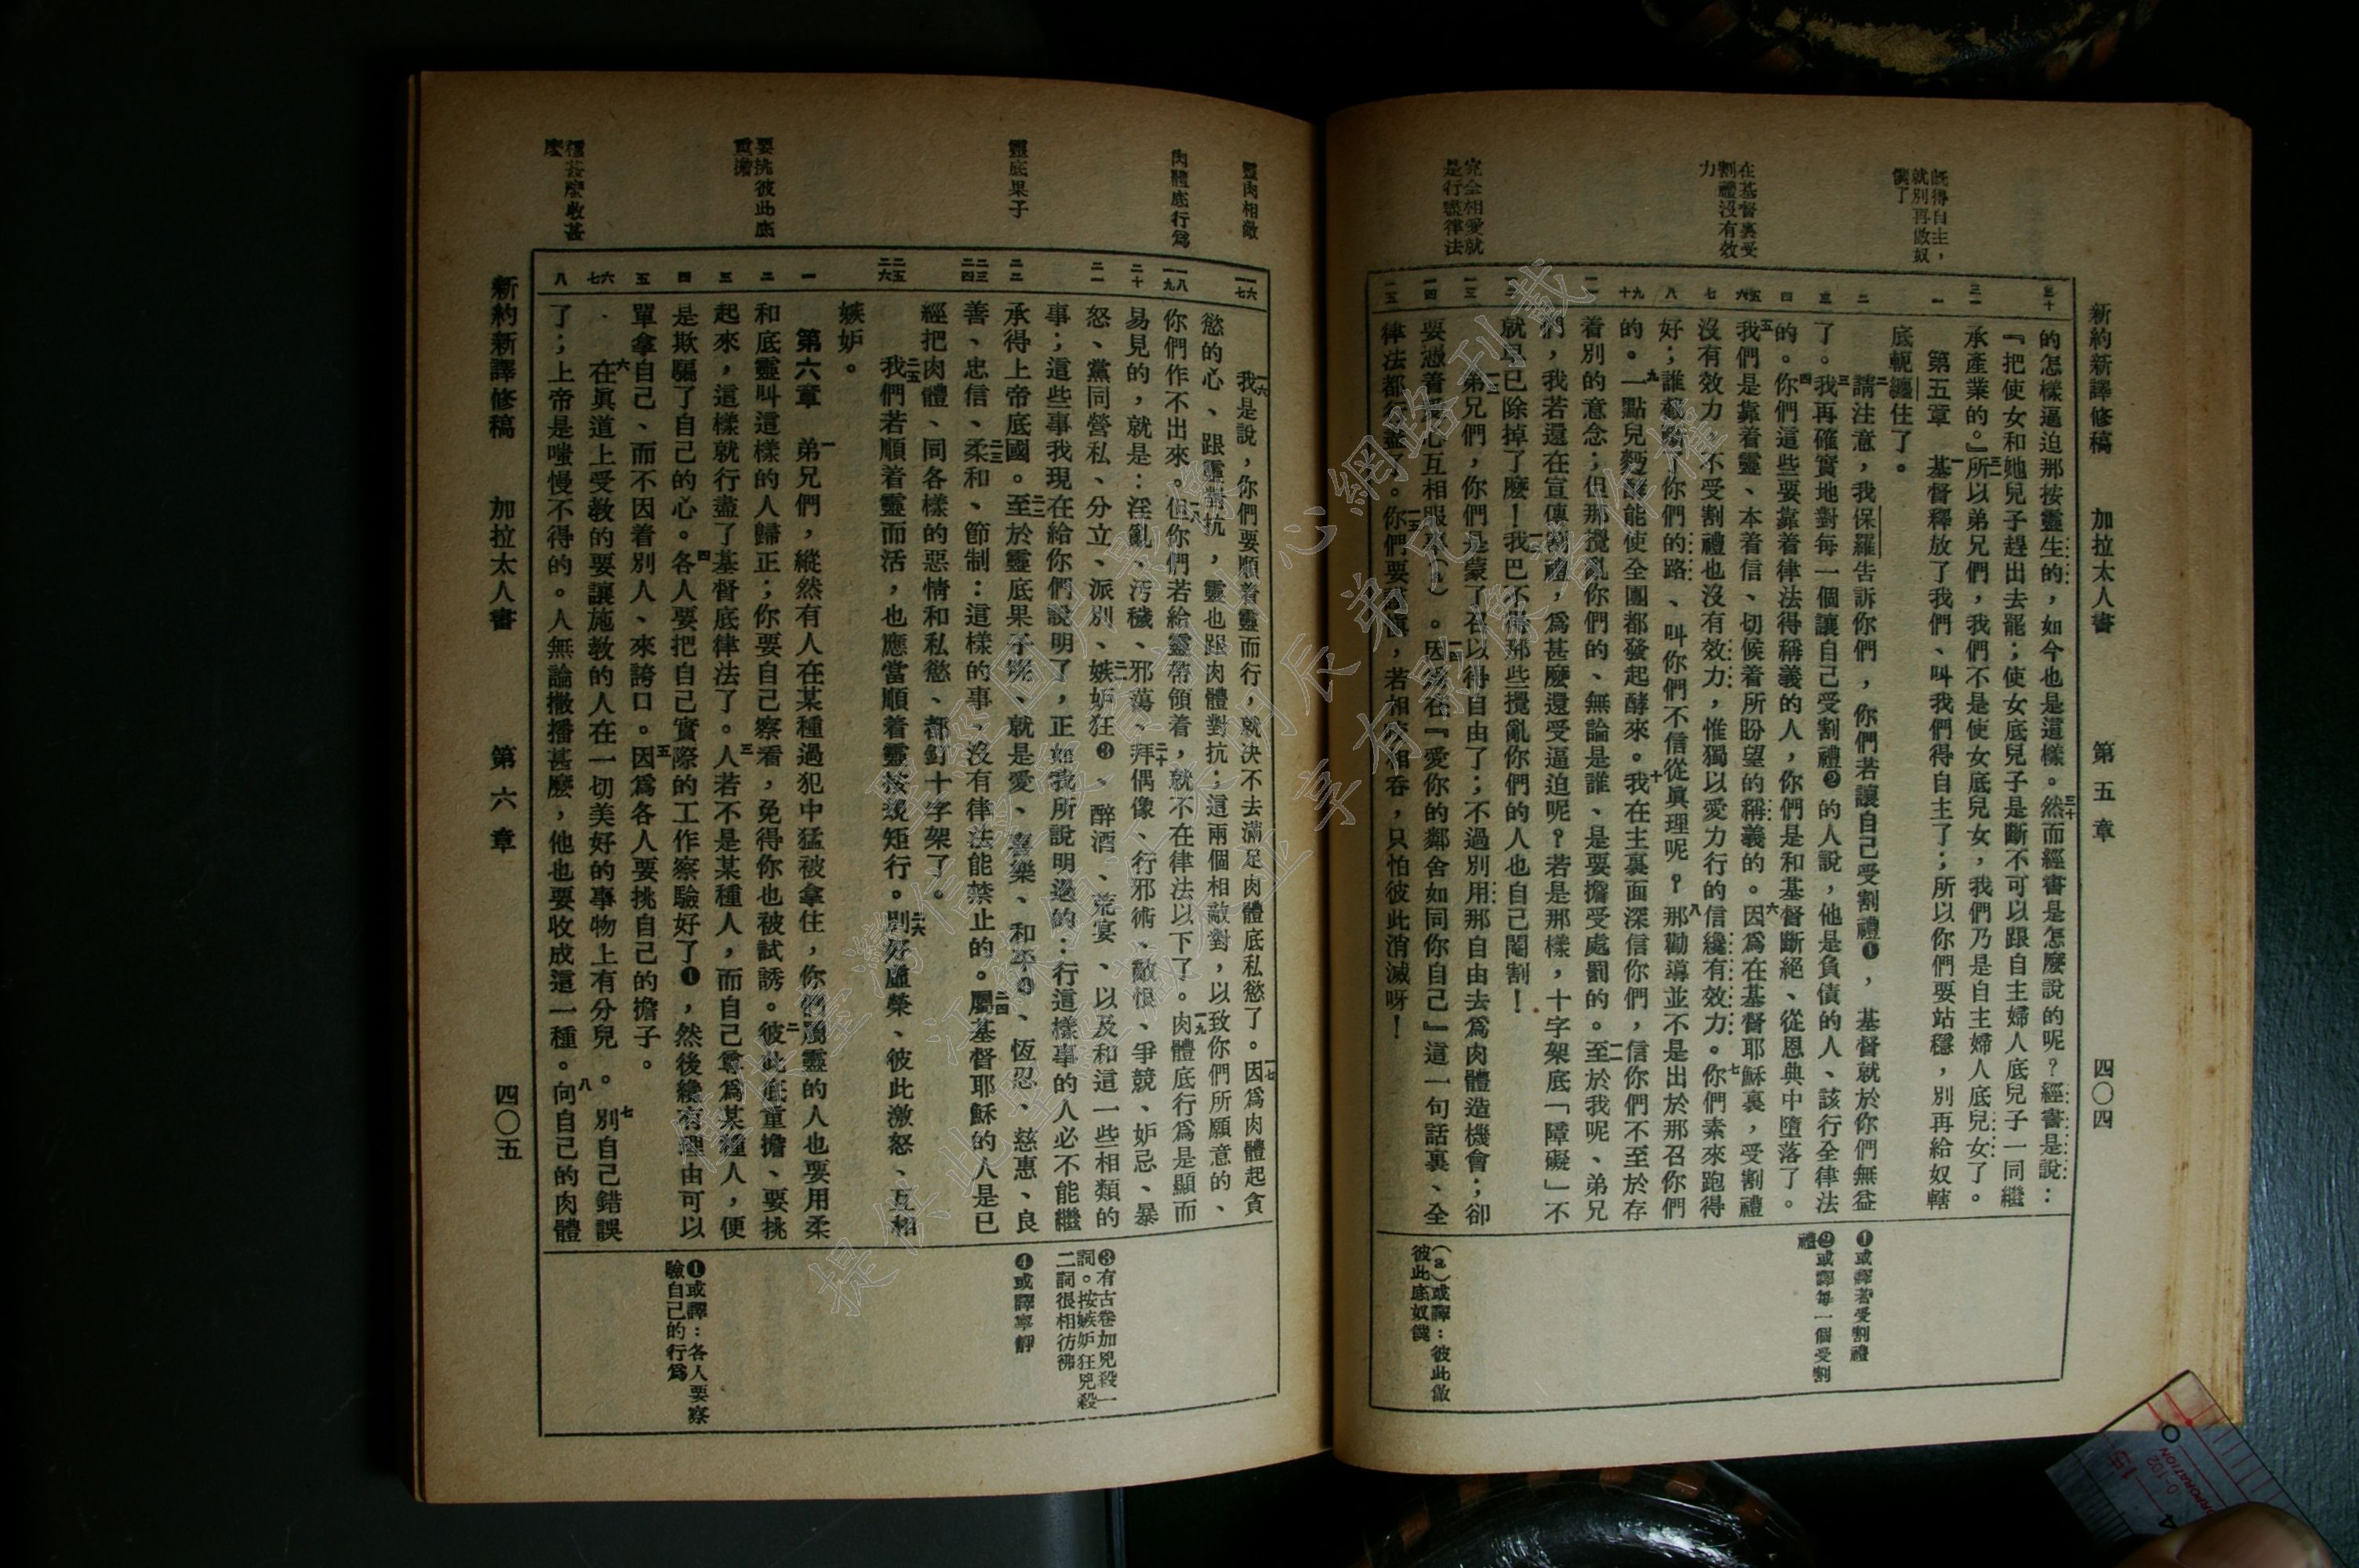 新約新譯修稿 加拉太人書 第五章 四〇四
既得自主，
就別再做奴
僕了
在基督裏受
割禮沒有效
力
完全相愛就
是行盡律法
的怎樣逼迫那按靈生的，如今也是這樣。三十然而經書是怎麼說的呢？經書是說：
『把使女和她兒子趕出去罷；使女底兒子是斷不可以跟自主婦人底兒子一同繼
承產業的。』三一所以弟兄們，我們不是使女底兒女，我們乃是自主婦人底兒女了。
第五章 一基督釋放了我們、叫我們得自主了；所以你們要站穩，別再給奴轄
底軛纏住了。
二請注意，我保羅告訴你們，你們若讓自己受割禮❶，基督就於你們無益
了。三我再確實地對每一個讓自己受割禮❷的人說，他是負債的人、該行全律法
的。四你們這些要靠着律法得稱義的人，你們是和基督斷絕、從恩典中墮落了。
五我們是靠着靈、本着信、切候着所盼望的稱義的。六因爲在基督耶穌裏，受割禮
沒有效力，不受割禮也沒有效力，惟獨以愛力行的信纔有效力。七你們素來跑得
好；誰截斷了你們的路、叫你們不信從眞理呢？八那勸導並不是出於那召你們
的。九一點兒麪酵能使全團都發起酵來。十我在主裏面深信你們，信你們不至於存
着別的意念；但那攪亂你們的、無論是誰、是要擔受處罰的。一一至於我呢、弟兄
們，我若還在宣傳割禮，爲甚麼還受逼迫呢？若是那樣，十字架底「障礙」不
就早已除掉了麼！一二我巴不得那些攪亂你們的人也自己閹割！
一三弟兄們，你們是蒙了召以得自由了；不過別用那自由去爲肉體造機會；卻
要憑着愛心互相服事(a)。一四因爲在『愛你的鄰舍如同你自己』這一句話裏、全
律法都行盡了。一五你們要謹愼，若相咬相吞，只怕彼此消滅呀！
❶或譯若受割禮
❷或譯每一個受割
禮
(a)或譯：彼此做
彼此底奴僕
靈肉相敵
肉體底行爲
靈底果子
要挑彼此底
重擔
種甚麼收甚
麼
一六我是說，你們要順着靈而行，就決不去滿足肉體底私慾了。一七因爲肉體起貪
慾的心、跟靈對抗，靈也跟肉體對抗；這兩個相敵對，以致你們所願意的、
你們作不出來。一八但你們若給靈帶領着，就不在律法以下了。一九肉體底行爲是顯而
易見的，就是：淫亂、污穢、邪蕩、二十拜偶像、行邪術、敵恨、爭競、妒忌、暴
怒、黨同營私、分立、派別、二一嫉妒狂❸、醉酒、荒宴、以及和這一些相類的
事；這些事我現在給你們說明了，正如我所說明過的：行這樣事的人必不能繼
承得上帝底國。二二至於靈底果子呢、就是愛、喜樂、和平❹、恆忍、慈惠、良
善、忠信、二三柔和、節制：這樣的事、沒有律法能禁止的。二四屬基督耶穌的人是已
經把肉體、同各樣的惡情和私慾、都釘十字架了。
二五我們若順着靈而活，也應當順着靈按規矩行。二六別好虛榮、彼此激怒、互相
嫉妒。
第六章 一弟兄們，縱然有人在某種過犯中猛被拿住，你們屬靈的人也要用柔
和底靈叫這樣的人歸正；你要自己察看，免得你也被試誘。二彼此底重擔、要挑
起來，這樣就行盡了基督底律法了。三人若不是某種人，而自己尊爲某種人，便
是欺騙了自己的心。四各人要把自己實際的工作察驗好了❶，然後纔有理由可以
單拿自己、而不因着別人、來誇口。五因爲各人要挑自己的擔子。
六在眞道上受教的要讓施教的人在一切美好的事物上有分兒。七別自己錯誤
了；上帝是嗤慢不得的。人無論撒播甚麼，他也要收成這一種。八向自己的肉體
❸有古卷加兇殺一
詞。按嫉妒狂兇殺
二詞很相彷彿
❹或譯寧靜
❶或譯：各人要察
驗自己的行爲
新約新譯修稿 加拉太人書 第六章 四〇五